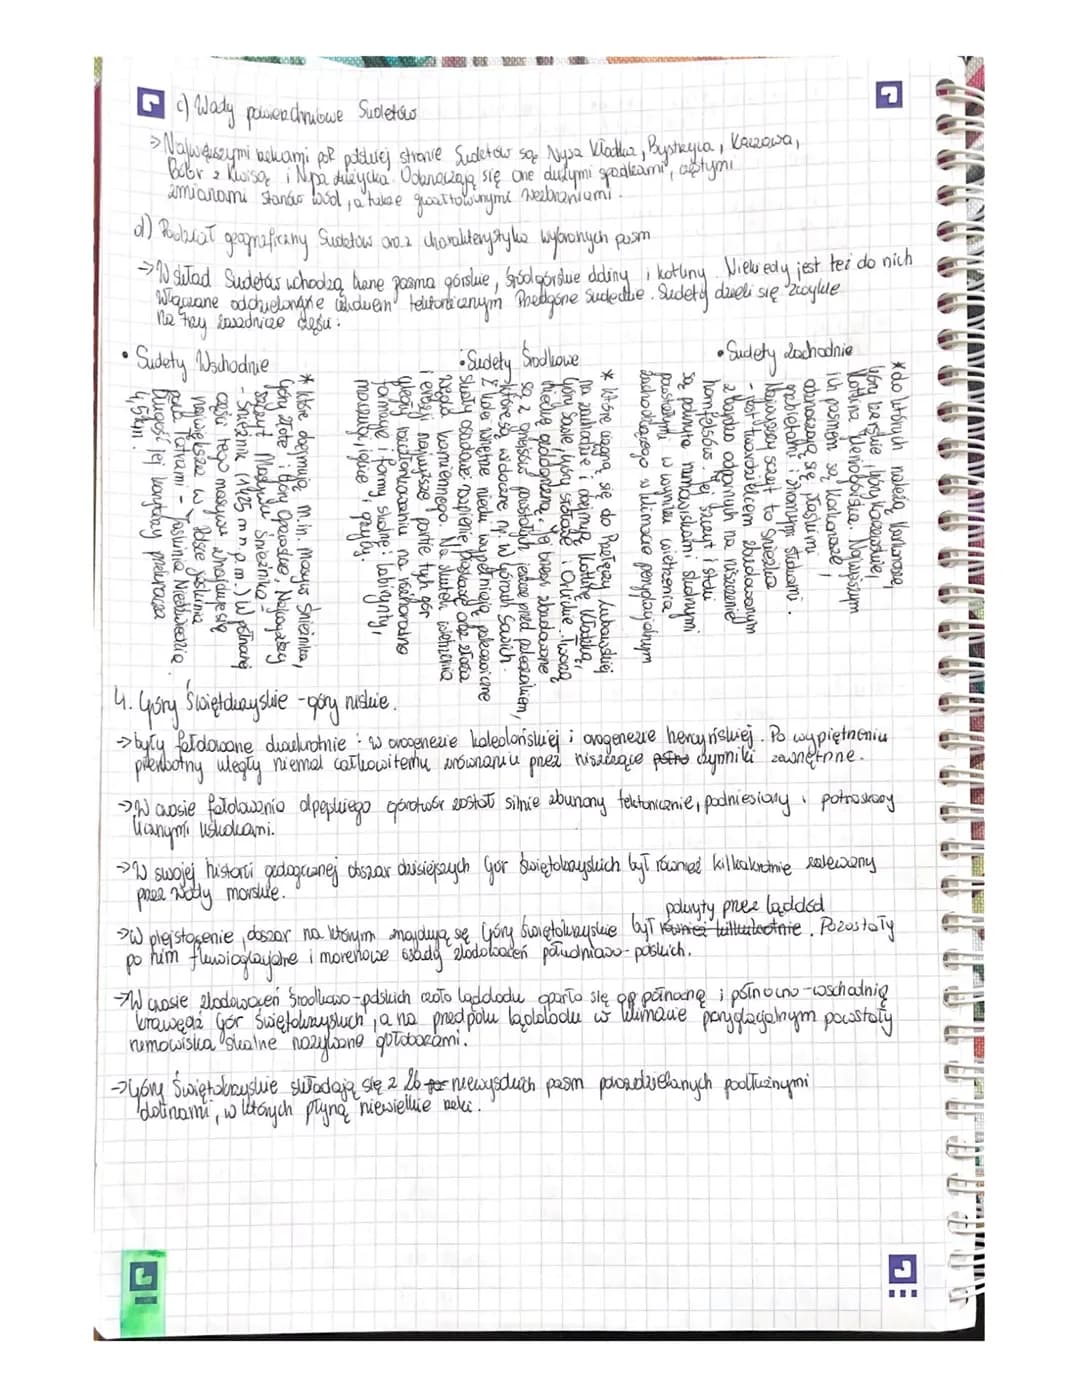 c) Wody powierzchniowe Sudetów
→ Największymi rzekami po polskiej stronie Sudetów są Nysa Kłodzka, Bystrzyca, Kaczawa,
Bóbr z Kwisą i Nysa Łużycka. Odznaczają się one dużymi spadkami, częstymi
zmianami stanów wód, a także gwałtownymi wezbraniami.
d) Podział geograficzny Sudetów oraz charakterystyka wybranych pasm
→ W skład Sudetów wchodzą liczne pasma górskie, śródgórskie doliny i kotliny. Niekiedy jest też do nich
włączane oddzielone uskokiem tektonicznym Przedgórze Sudeckie. Sudety dzieli się zwykle
na trzy zasadnicze części:
• Sudety Wschodnie
* które obejmują m.in. Masyw Śnieżnika,
Góry Złote i Góry Opawskie. Najwyższy
szczyt Masywu Śnieżnika
- Śnieżnik (1425 m n.p.m.) W północnej
części tego masywu znajduje się
największa w Polsce jaskinia
poza Tatrami - Jaskinia Niedźwiedzia.
Długość jej korytarzy przekracza
4,5 km.
• Sudety Środkowe
* które ciągną się do Przełęczy Lubawskiej
na zachodzie i obejmują Kotlinę Kłodzką,
Góry Sowie, Góry Stołowe i Orlickie. Tworzą
nieckę śródgórską. Jej brzegi zbudowane
są z gnejsów powstałych jeszcze przed paleozoikiem,
które są widoczne np. w Górach Sowich.
Z kolei wnętrze niecki wypełniają paleozoiczne
skały osadowe: zlepieńce, piaskowce oraz złoża
węgla kamiennego. Na skutek wietrzenia
i erozji najwyższe partie tych gór
uległy rozczłonkowaniu na różnorodne
formacje i formy skalne: labirynty,
maczugi, iglice i grzyby.
• Sudety Zachodnie
* do których należą Karkonosze,
Góry Izerskie, Góry Kaczawskie,
Kotlina Jeleniogórska. Najwyższym
ich pasmem są Karkonosze,
odznaczają się płaskimi
grzbietami i stromymi stokami.
Najwyższy szczyt to Śnieżka
- jest twardzielcem zbudowanym
z bardzo odpornych na niszczenie
hornfelsów. Jej szczyt i stoki
są pokryte rumowiskami skalnymi
powstałymi w wyniku wietrzenia
zachodzącego w klimacie peryglacjalnym
4. Góry Świętokrzyskie - góry niskie.
→ były fałdowane dwukrotnie: w orogenezie kaledońskiej i orogenezie hercyńskiej. Po wypiętrzeniu
pierwotny uległy niemal całkowitemu zrównaniu przez niszczące czynniki zewnętrzne.
→ W czasie fałdowania alpejskiego górotwór został silnie zburzony tektonicznie, podniesiony i potrzaskany
licznymi uskokami.
→ W swojej historii geologicznej obszar dzisiejszych Gór Świętokrzyskich był również kilkakrotnie zalewany
przez wody morskie.
pokryty przez lądolód
→ W plejstocenie, obszar na którym znajdują się Góry Świętokrzyskie był również kilkukrotnie. Pozostały
po nim fluwioglacjalne i morenowe osady zlodowaceń południowo-polskich.
→ W czasie zlodowaceń środkowo-polskich czoło lądolodu oparło się o północną i północno-wschodnią
krawędź Gór Świętokrzyskich, a na przedpolu lądolodu w klimacie peryglacjalnym powstały
rumowiska skalne nazywane gołoborzami.
→ Góry Świętokrzyskie składają się z 26 niewysokich pasm porozdzielanych podłużnymi
dolinami, w których płyną niewielkie rzeki.